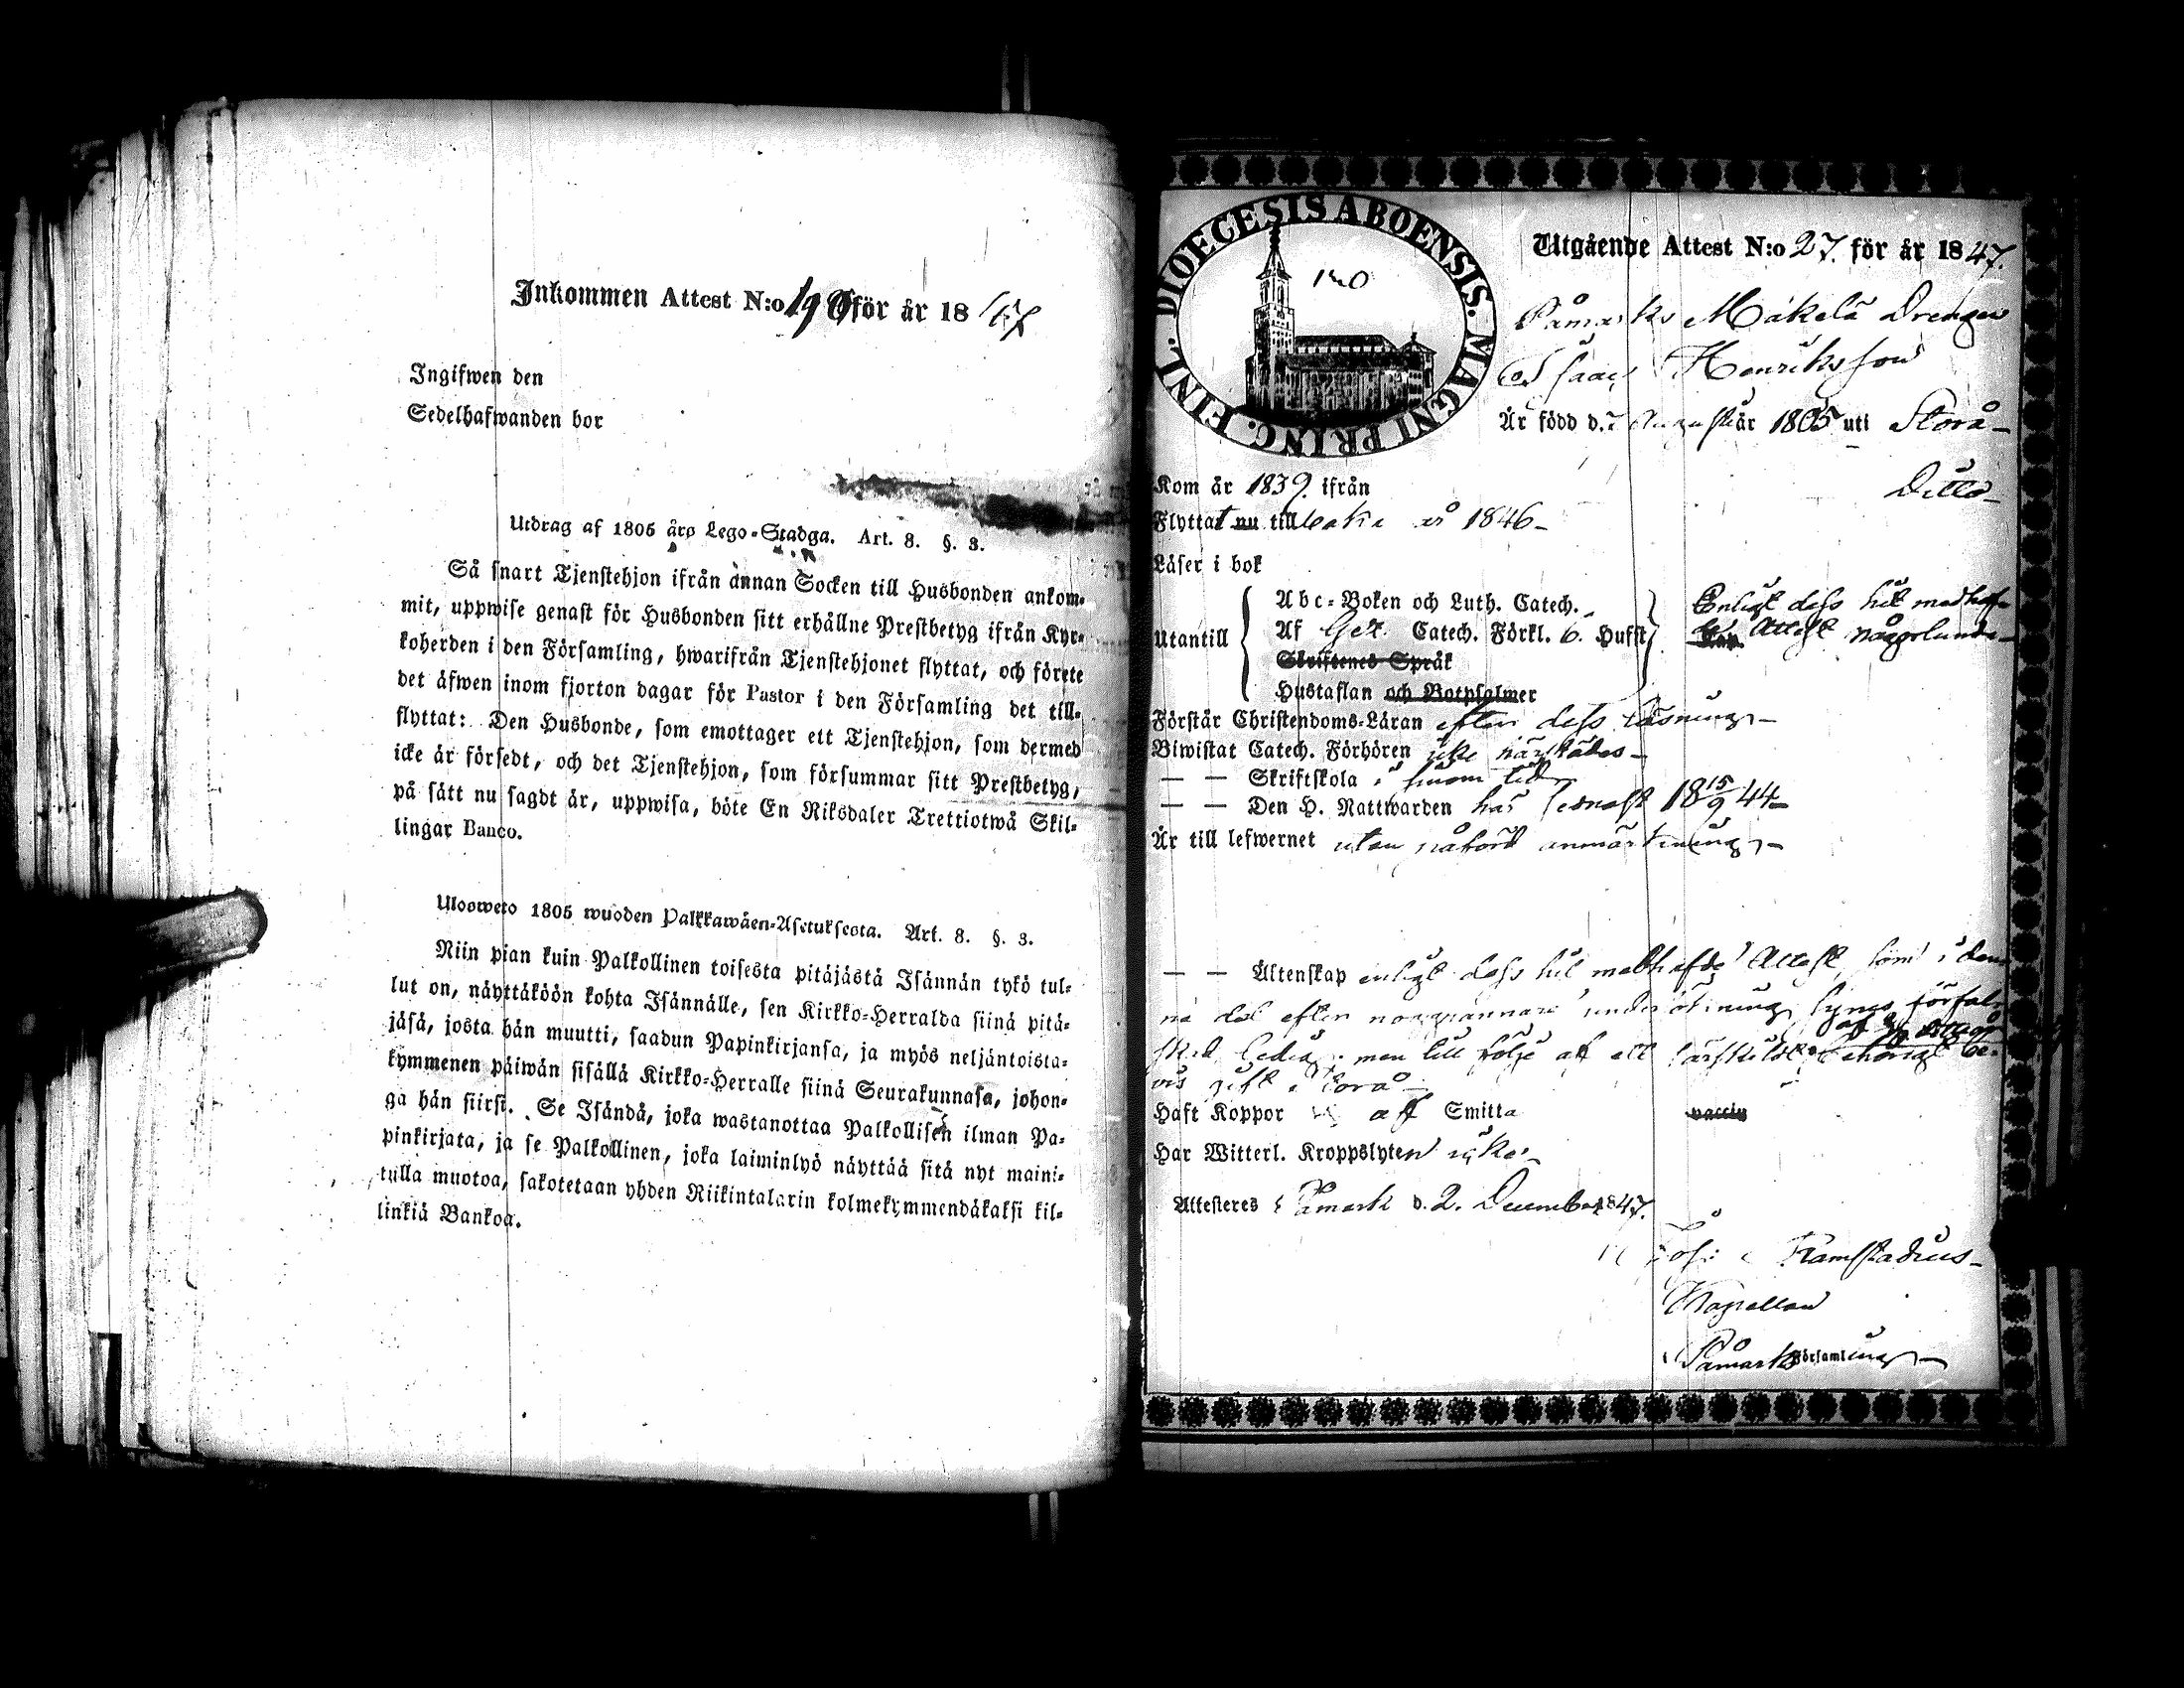 Inkommen Attest N:o för år 18
Ingifwen den
Sedelhafwanden bor
Utdrag af 1805 års Lego-Stadga. Art. 8. §. 3.
Så snart Tjenstehjon ifrån annan Socken till Husbonden ankom-
mit, uppwise genast för Husbonden sitt erhållne Prestbetyg ifrån Kyr-
koherden i den Församling, hwarifrån Tjenstehjonet flyttat, och förete
det äfwen inom fjorton dagar för Pastor i den Församling det till-
flyttat: Den Husbonde, som emottager ett Tjenstehjon, som dermed
icke är försedt, och det Tjenstehjon, som försummar sitt Prestbetyg,
på sätt nu sagdt är, uppwisa, böte En Riksdaler Trettiotwå Skil-
lingar Banco.
Ulosweto 1805 wuoden Palkkawäen-Asetuksesta. Art. 8. §. 3.
Niin pian kuin Palkollinen toisesta pitäjästä Isännän tykö tul-
lut on, näyttäköön kohta Isännälle, sen Kirkko-Herralda siinä pitä-
jäsä, josta hän muutti, saadun Papinkirjansa, ja myös neljäntoista-
kymmenen päiwän sisällä Kirkko-Herralle siinä Seurakunnasa, johon-
ga hän siirsi. Se Isändä, joka wastanottaa Palkollisen ilman Pa-
pinkirjata, ja se Palkollinen, joka laiminlyö näyttää sitä nyt maini-
tulla muotoa, sakotetaan yhden Riikintalarin kolmekymmendäkaksi kil-
linkiä Bankoa.
DIOECESIS ABOENSIS. MAGNI PRINC. FINL.
Utgående Attest N:o 27. för år 1847.
Påmarks Mäkelä Drengen
Isaac Henriksson
Är född d. 7 Augusti år 1805 uti Storå
Kom år 1839. ifrån Ditto
Flyttat nu tillbaka år 1846
Läser i bok
Utantill
Abc-Boken och Luth. Catech.
Af Gez. Catech. Förkl. 6. Hufst
Skriftenes Språk
Hustaflan och Botpsalmer
Enligt dess hit medhaf-
Attest någorlunda
Förstår Christendoms-Läran efter dess läsning
Biwistat Catech. Förhören icke härstädes
— — Skriftskola i sinom tid
— — Den H. Nattwarden har senast 18 15/9 44
Är till lefwernet utan påförd anmärkning
— — Äktenskap enligt dess hit medhafde Attest, som i den
na del efter noggrannare undersökning synes förfal
skad, ledig; men till följe af ett särskildt behörigt be-
vis gift i Storå
Haft Koppor af Smitta vaccin
Har Witterl. Kroppslyten icke
Attesteres i Påmark d. 2. December 1847.
Framstadius
Kapellan
i Påmarks Församling